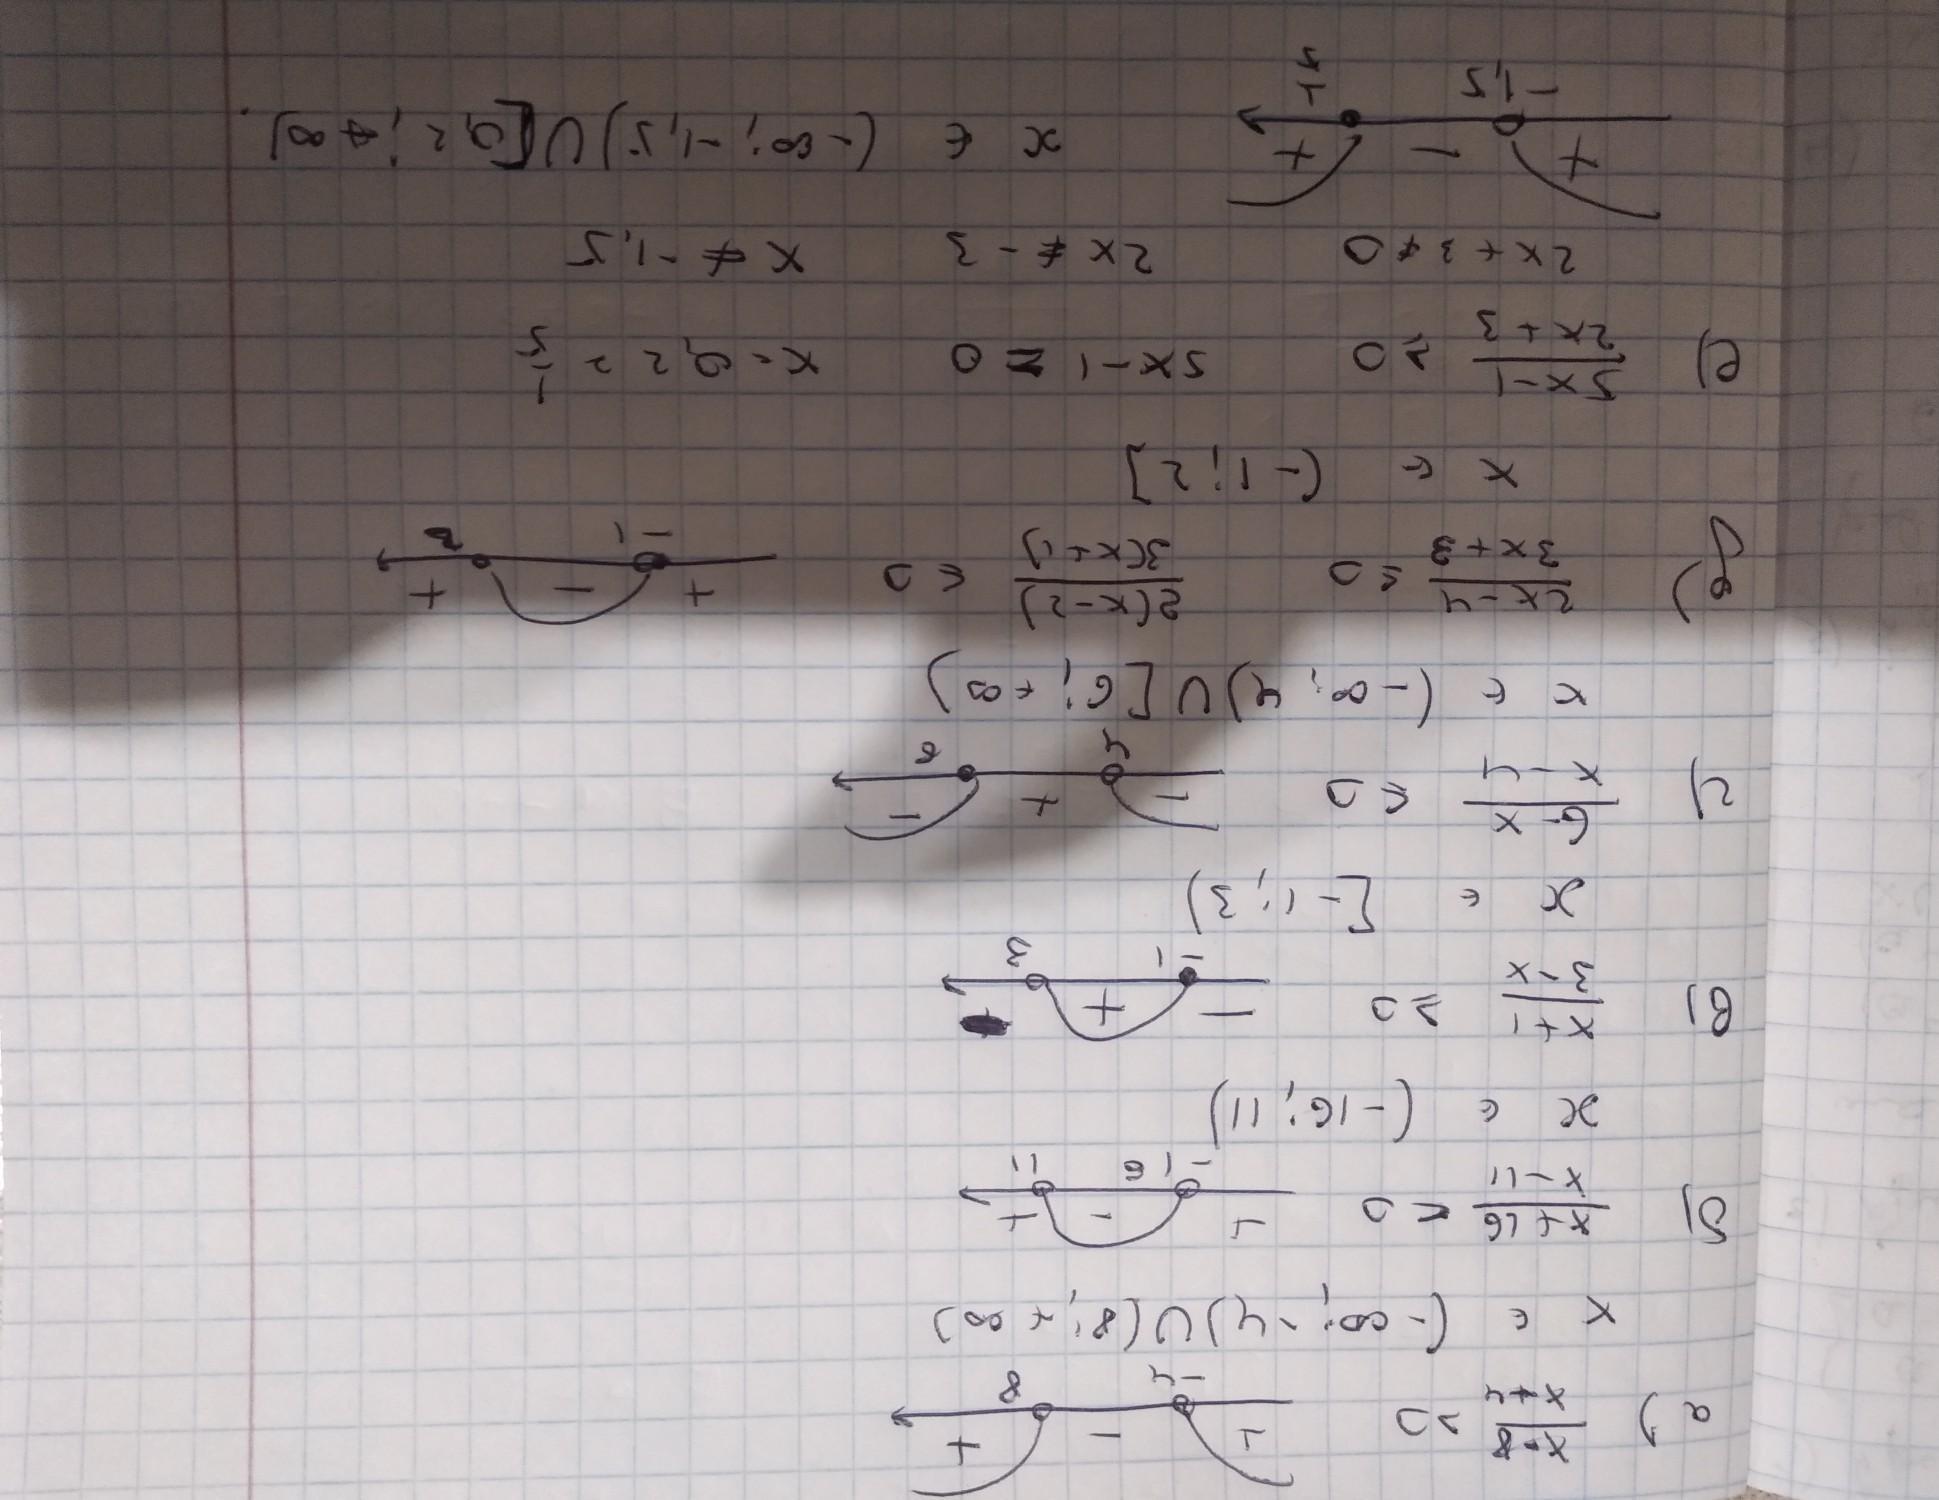 а) x-8/x+4 > 0 + - + -4 8
x ∈ (-∞; -4) ∪ (8; +∞)
б) x+16/x-11 < 0 + - + -16 11
x ∈ (-16; 11)
в) x+1/3-x ≥ 0 - + -1 3
x ∈ [-1; 3)
г) 6-x/x-4 ≤ 0 - + - 4 6
x ∈ (-∞; 4) ∪ [6; +∞)
д) 2x-4/3x+3 ≤ 0 2(x-2)/3(x+1) ≤ 0 + - + -1 2
x ∈ (-1; 2]
е) 5x-1/2x+3 ≥ 0 5x-1 = 0 x = 0,2 = 1/5
2x+3 ≠ 0 2x ≠ -3 x ≠ -1,5
+ - + -1,5 1/5 x ∈ (-∞; -1,5) ∪ [0,2; +∞).